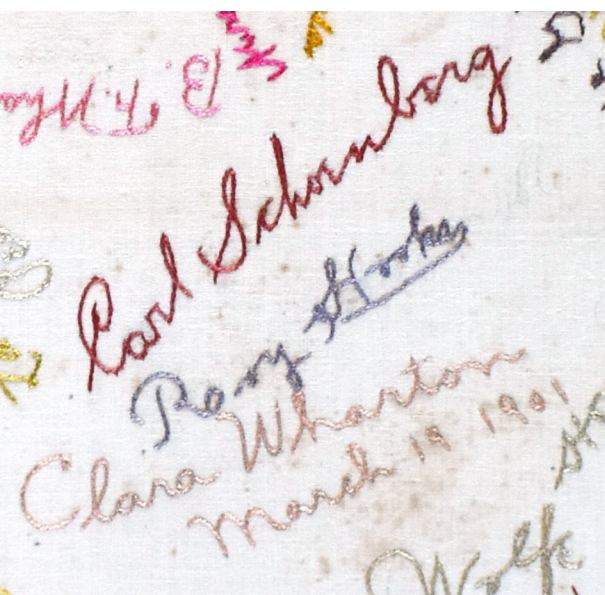 Carl Schoenborg
Roxy Hooks
Clara Wharton
March 19 1901
Wolfe